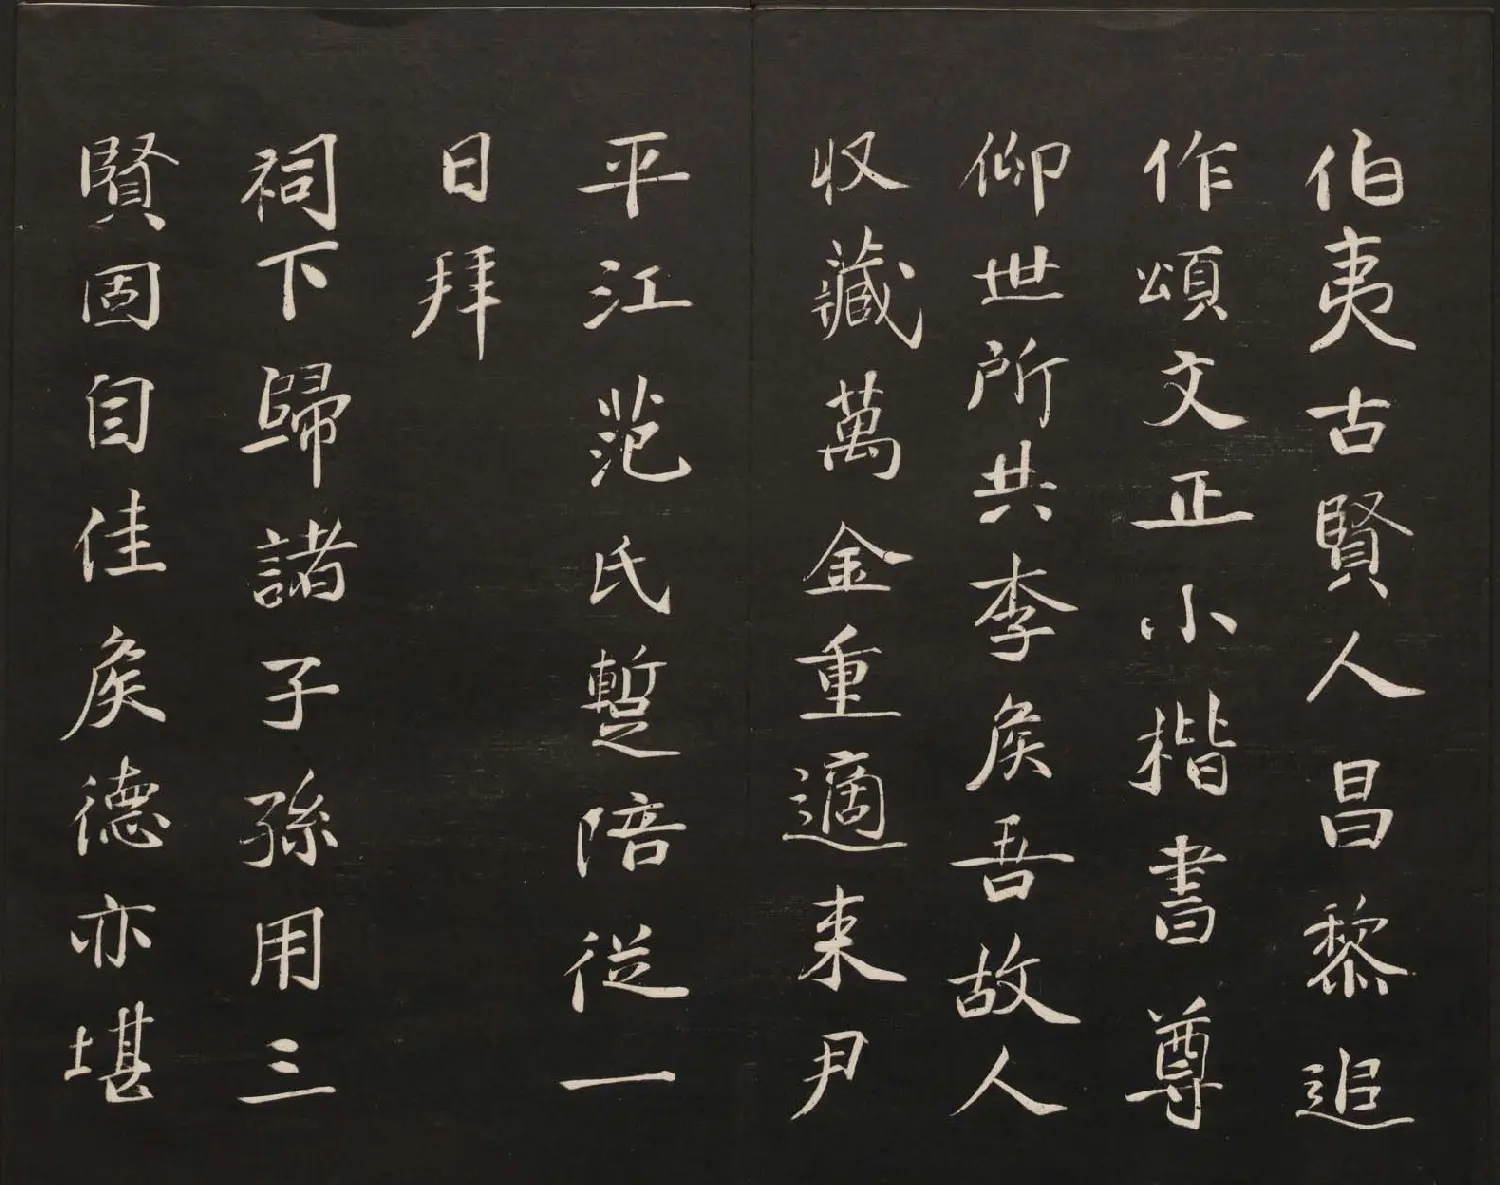 伯夷古賢人昌黎追
作頌文正小楷書尊
仰世所共李矦吾故人
収藏萬金重適来尹
平江范氏蹔陪従一
日拜
祠下歸諸子孫用三
賢固自佳矦德亦堪